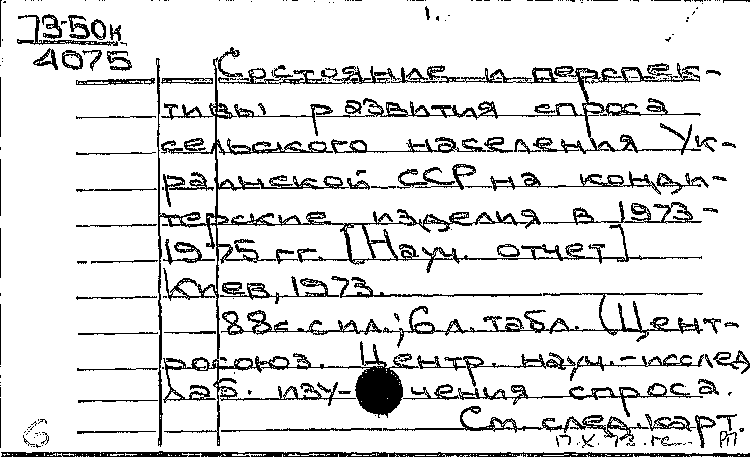 1.
73-50к
4075
Состояние и перспек-
тивы развития спроса
сельского населения Ук-
раинской ССР на конди-
терские изделия в 1973-
1975 гг. [Науч. отчет]
Киев, 1973.
88с. с ил.; 6 л. табл. (Цент-
росоюз. Центр. науч.-исслед
лаб. изу-чения спроса.
См. след. карт.
6
17.X.73. РП